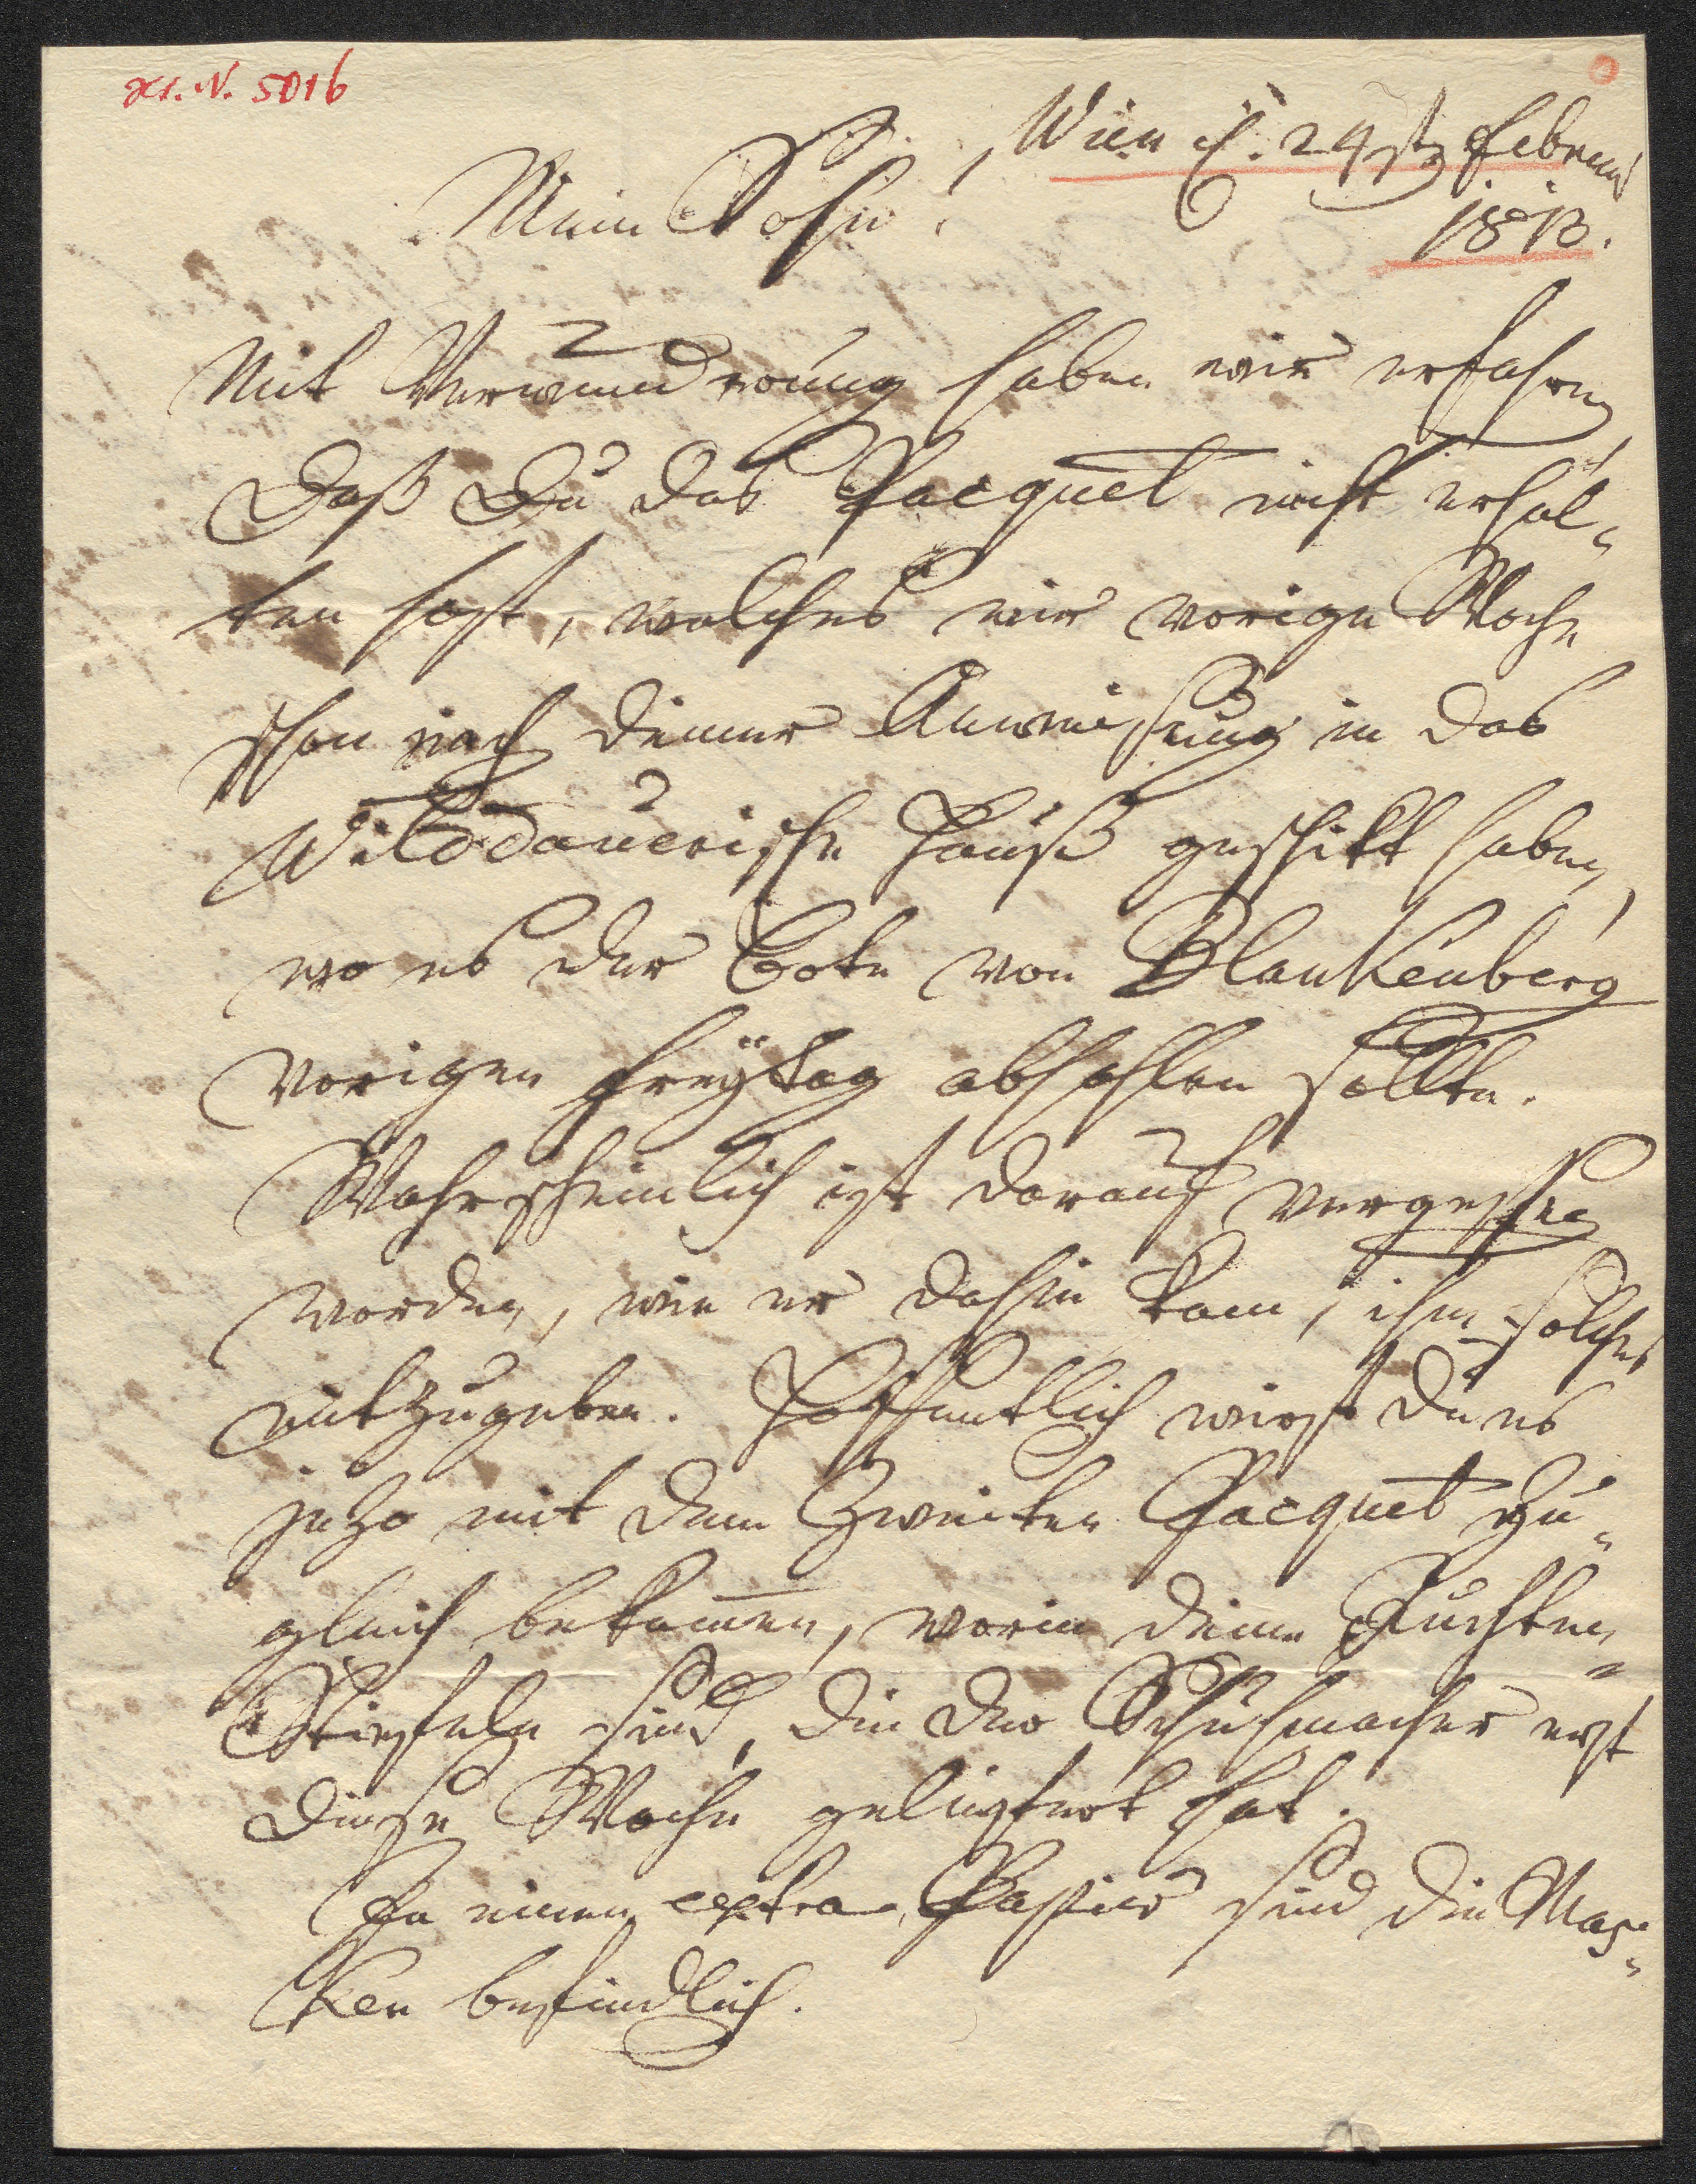 N. 5016
Wien d. 24st Februar
1810.
Mein Sohn!
Mit Verwundrung haben wir erfahren,
daß Du das Pacquet nicht erhal-
ten hast, welches wir vorige Woche
schon nach deiner Anweisung in das
Wilddauerische Hauß geschikt haben,
wo es der Bote von Blankenberg
vorigen Freÿtag abhohlen sollte.
Wahrscheinlich ist darauf vergessen
worden, wie er dahin kam, ihm solches
mitzugeben. Hoffentlich wirst du es
jezo mit dem Zweiten Pacquet zu-
gleich bekom̄en, worin deine Juchten-
Stiefeln sind, die der Schuhmacher erst
diese Woche geliefert hat.
In einem extra Papier sind die Mas-
ken befindlich.